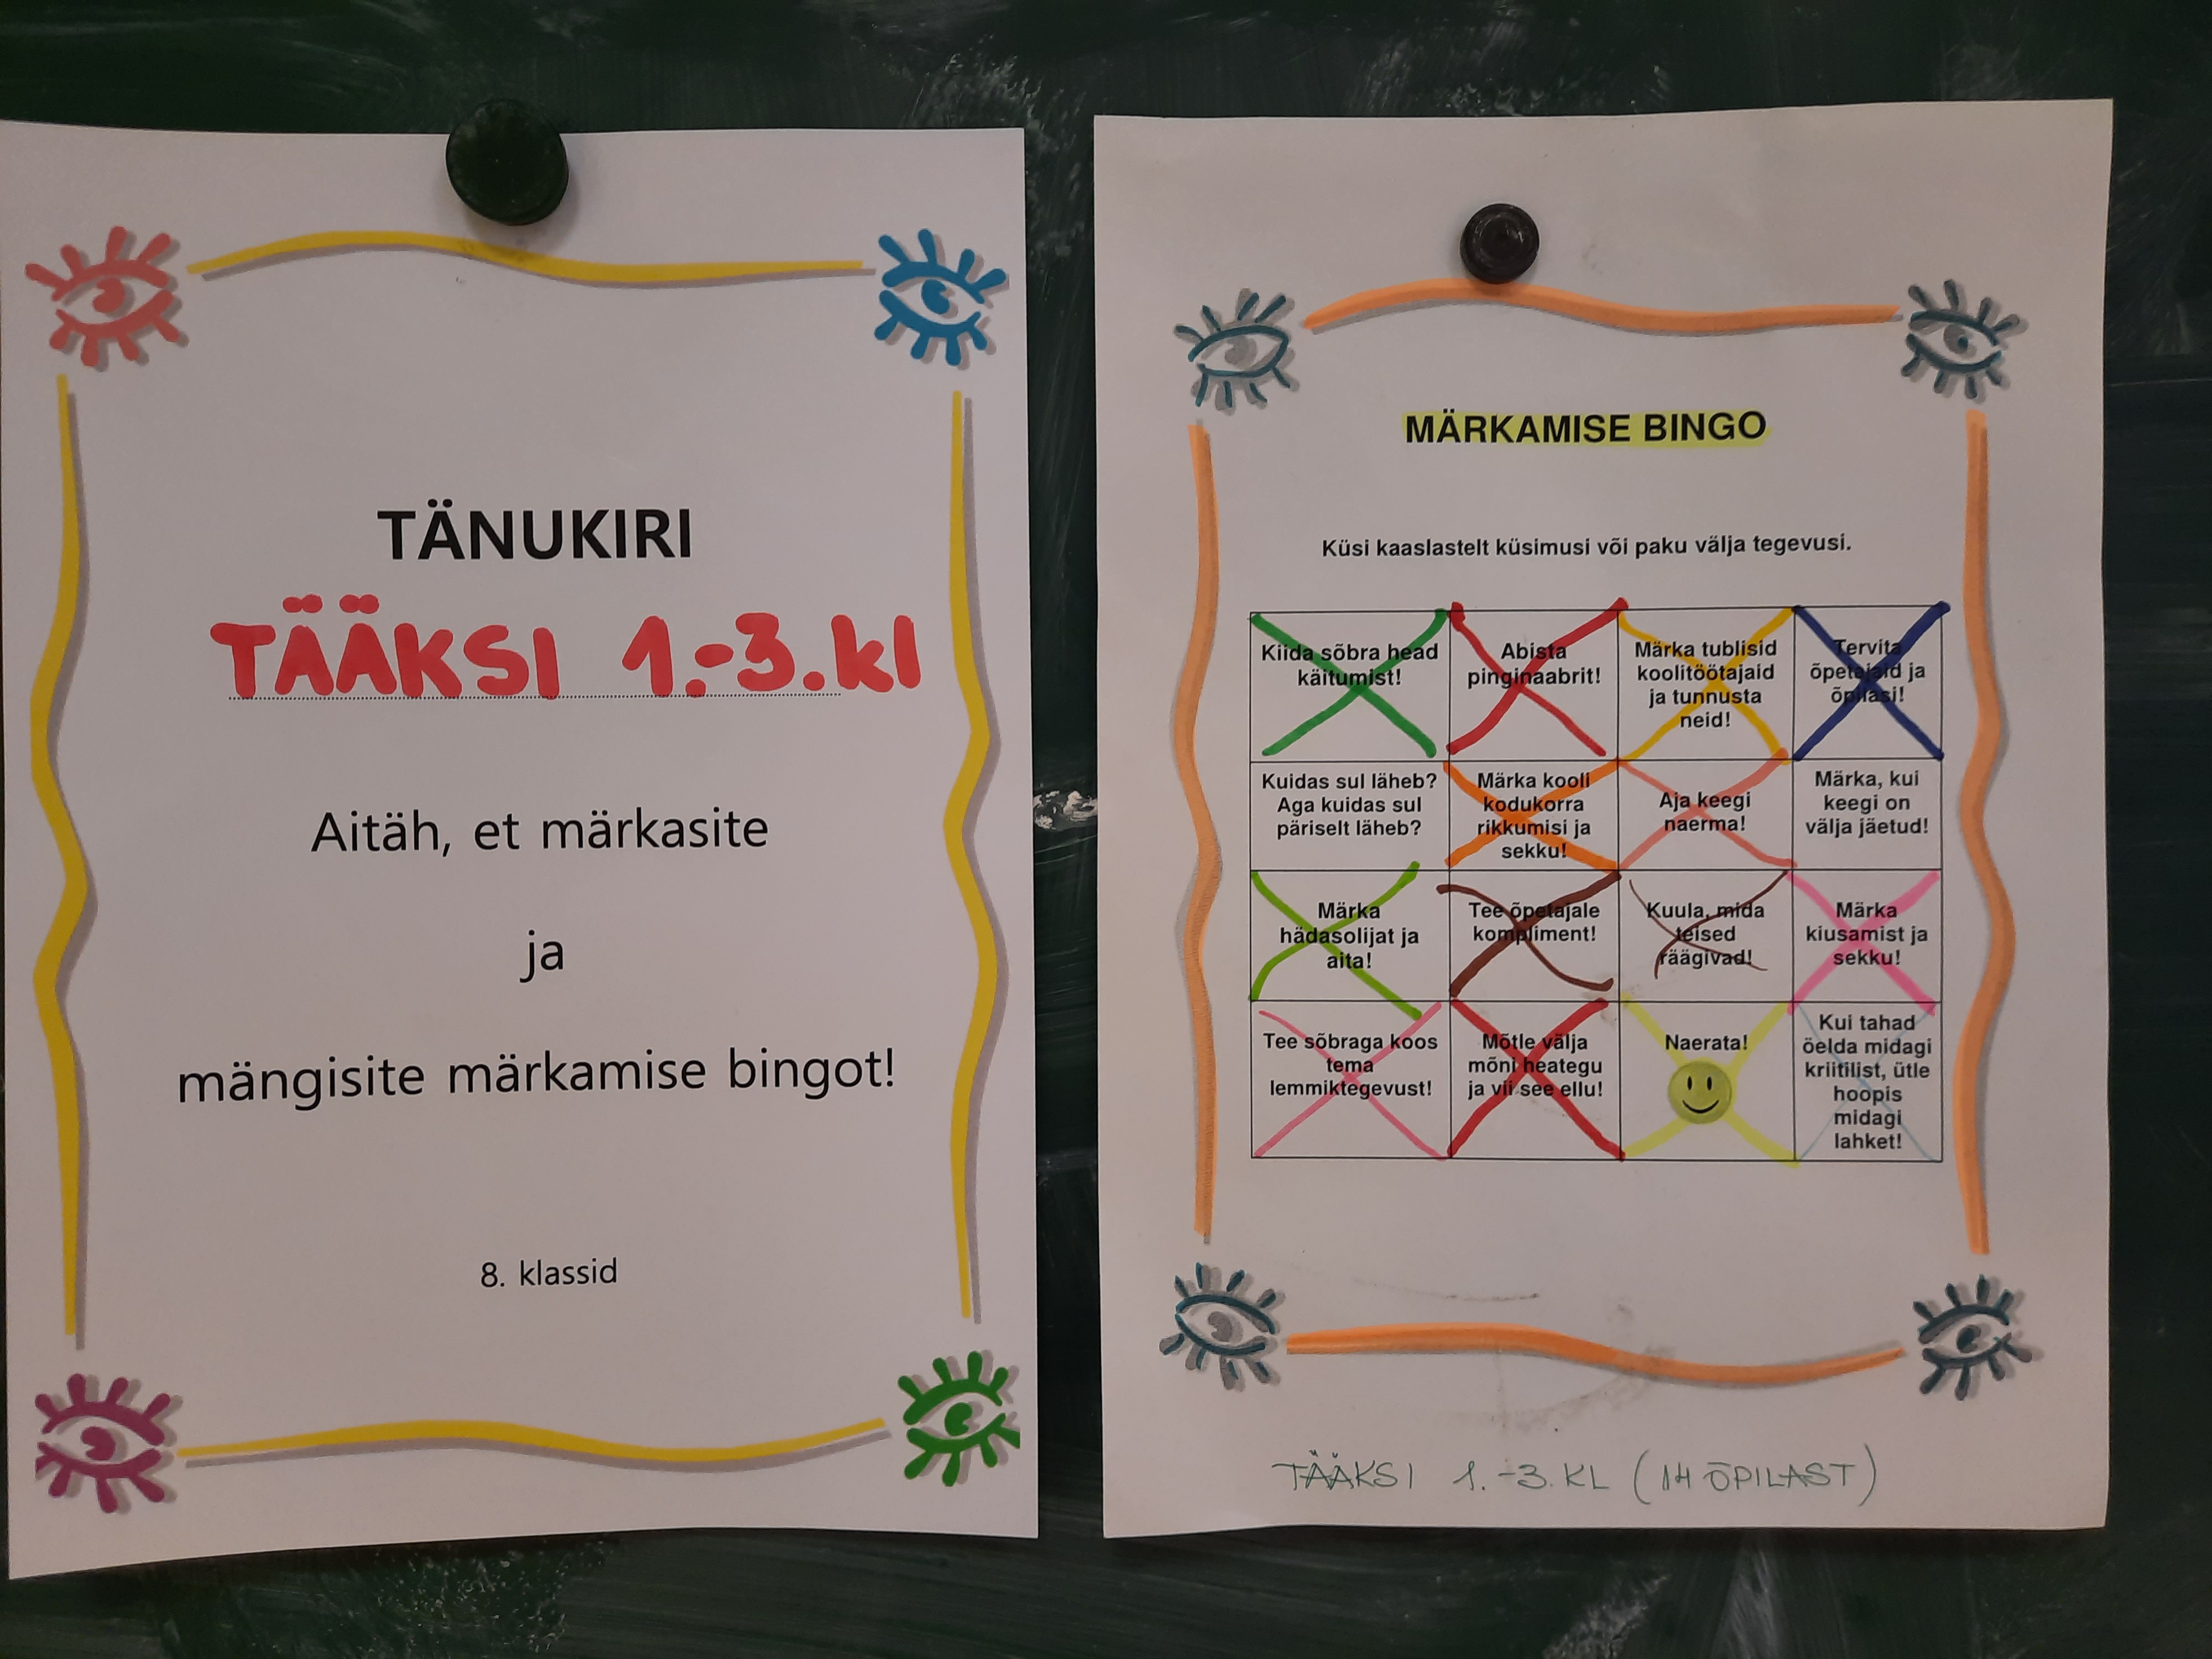 TÄNUKIRI
TÄÄKSI 1.-3.kl
Aitäh, et märkasite
ja
mängisite märkamise bingot!
8. klassid
MÄRKAMISE BINGO
Küsi kaaslastelt küsimusi või paku välja tegevusi.
Kiida sõbra head
käitumist!
Abista
pinginaabrit!
Märka tublisid
koolitöötajaid
ja tunnusta
neid!
Tervita
õpetajaid ja
õpilasi!
Kuidas sul läheb?
Aga kuidas sul
päriselt läheb?
Märka kooli
kodukorra
rikkumisi ja
sekku!
Aja keegi
naerma!
Märka, kui
keegi on
välja jäetud!
Märka
hädasolijat ja
aita!
Tee õpetajale
kompliment!
Kuula, mida
teised
räägivad!
Märka
kiusamist ja
sekku!
Tee sõbraga koos
tema
lemmiktegevust!
Mõtle välja
mõni heategu
ja vii see ellu!
Naerata!
Kui tahad
öelda midagi
kriitilist, ütle
hoopis
midagi
lahket!
TÄÄKSI 1.-3. KL (14 ÕPILAST)